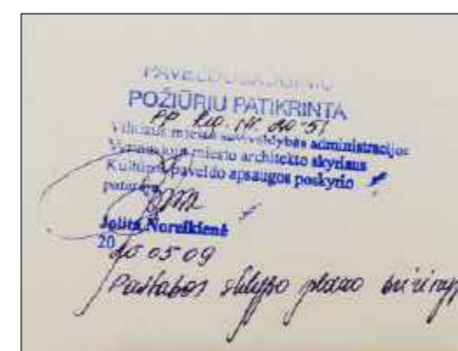 PAVELDOSAUGINIU
POŽIŪRIU PATIKRINTA
Vilniaus miesto savivaldybės administracijos
Vyriausiojo miesto architekto skyriaus
Kultūros paveldo apsaugos poskyrio
patarėja
Jolita Noreikienė
20 20 05 09
Pastabos sklypo plano